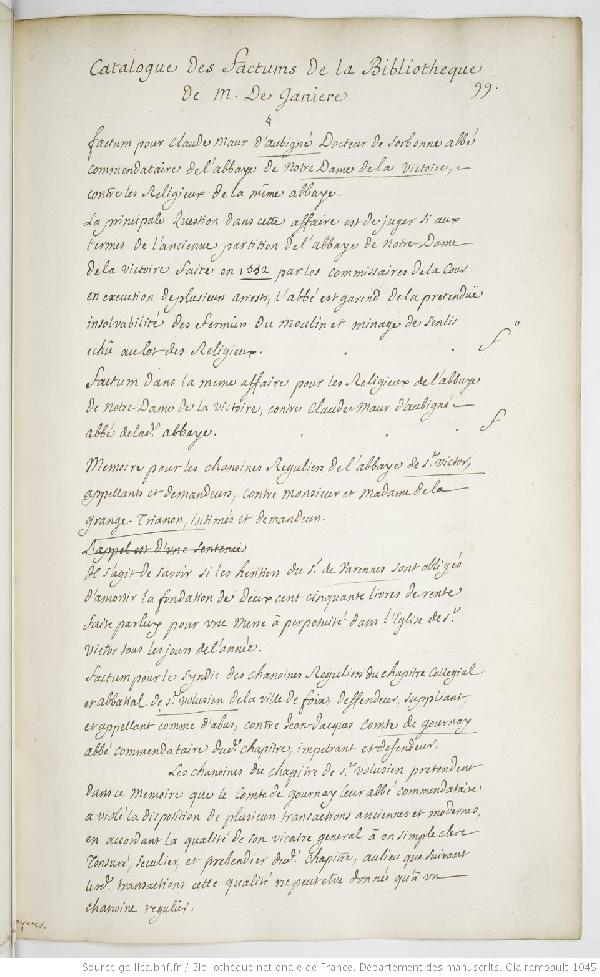 Catalogue des factums de la Bibliotheque
de M. De Ganiere
99.
factum pour Claude Maur d'aubigné Docteur de Sorbonne abbé
commendataire de l'abbaye de Notre Dame de la Victoire,
contre les Religieux de la même abbaye.
La principale Question dans cette affaire est de juger si aux
termes de l'ancienne partition de l'abbaye de Notre-Dame
de la Victoire faite en 1582 par les commissaires de la Cour
en execution de plusieurs arrests, l'abbé est garend de la pretenduë
insolvabilité des fermiers du Moulin et minage de Senlis
echû au lot des Religieux.
fo
factum dans la meme affaire pour les Religieux de l'abbaye
de Notre-Dame de la Victoire, contre Claude-Maur d'aubigné
abbé de lad. abbaye.
f
Memoire pour les chanoines Reguliers de l'abbaye de St. Victor,
appellants et demandeurs, contre Monsieur et Madame de la
grange-Trianon, intimés et demandeurs.
L'appel est d'une sentence
Il s'agit de savoir si les heritiers du Sr. de Varennes sont obligés
d'amortir la fondation de deux cent cinquante livres de rente
faite par luy pour une Messe à perpetuité dans l'Eglise de St.
Victor tous les jours de l'année.
factum pour le Syndic des chanoines Reguliers du chapitre Collegial
et abbatial de St. Volusien de la ville de foix, deffendeur, suppliant,
et appellant comme d'abus, contre Jean-Jacques Comte de gournay
abbé commendataire dud. chapitre, impetrant et defendeur.
Les chanoines du chapitre de St. Volusien pretendent
dans ce Memoire que le Comte de gournay leur abbé commendataire
a violé la disposition de plusieurs transactions anciennes et modernes,
en accordant la qualité de son vicaire general à un simple clerc
Tonsuré, seculier, et prebendier dud. chapitre, au lieu que suivant
lesd. transactions cette qualité ne peut etre donnée qu'à un
chanoine regulier.
Source gallica.bnf.fr / Bibliothèque nationale de France. Département des manuscrits. Clairambault 1045